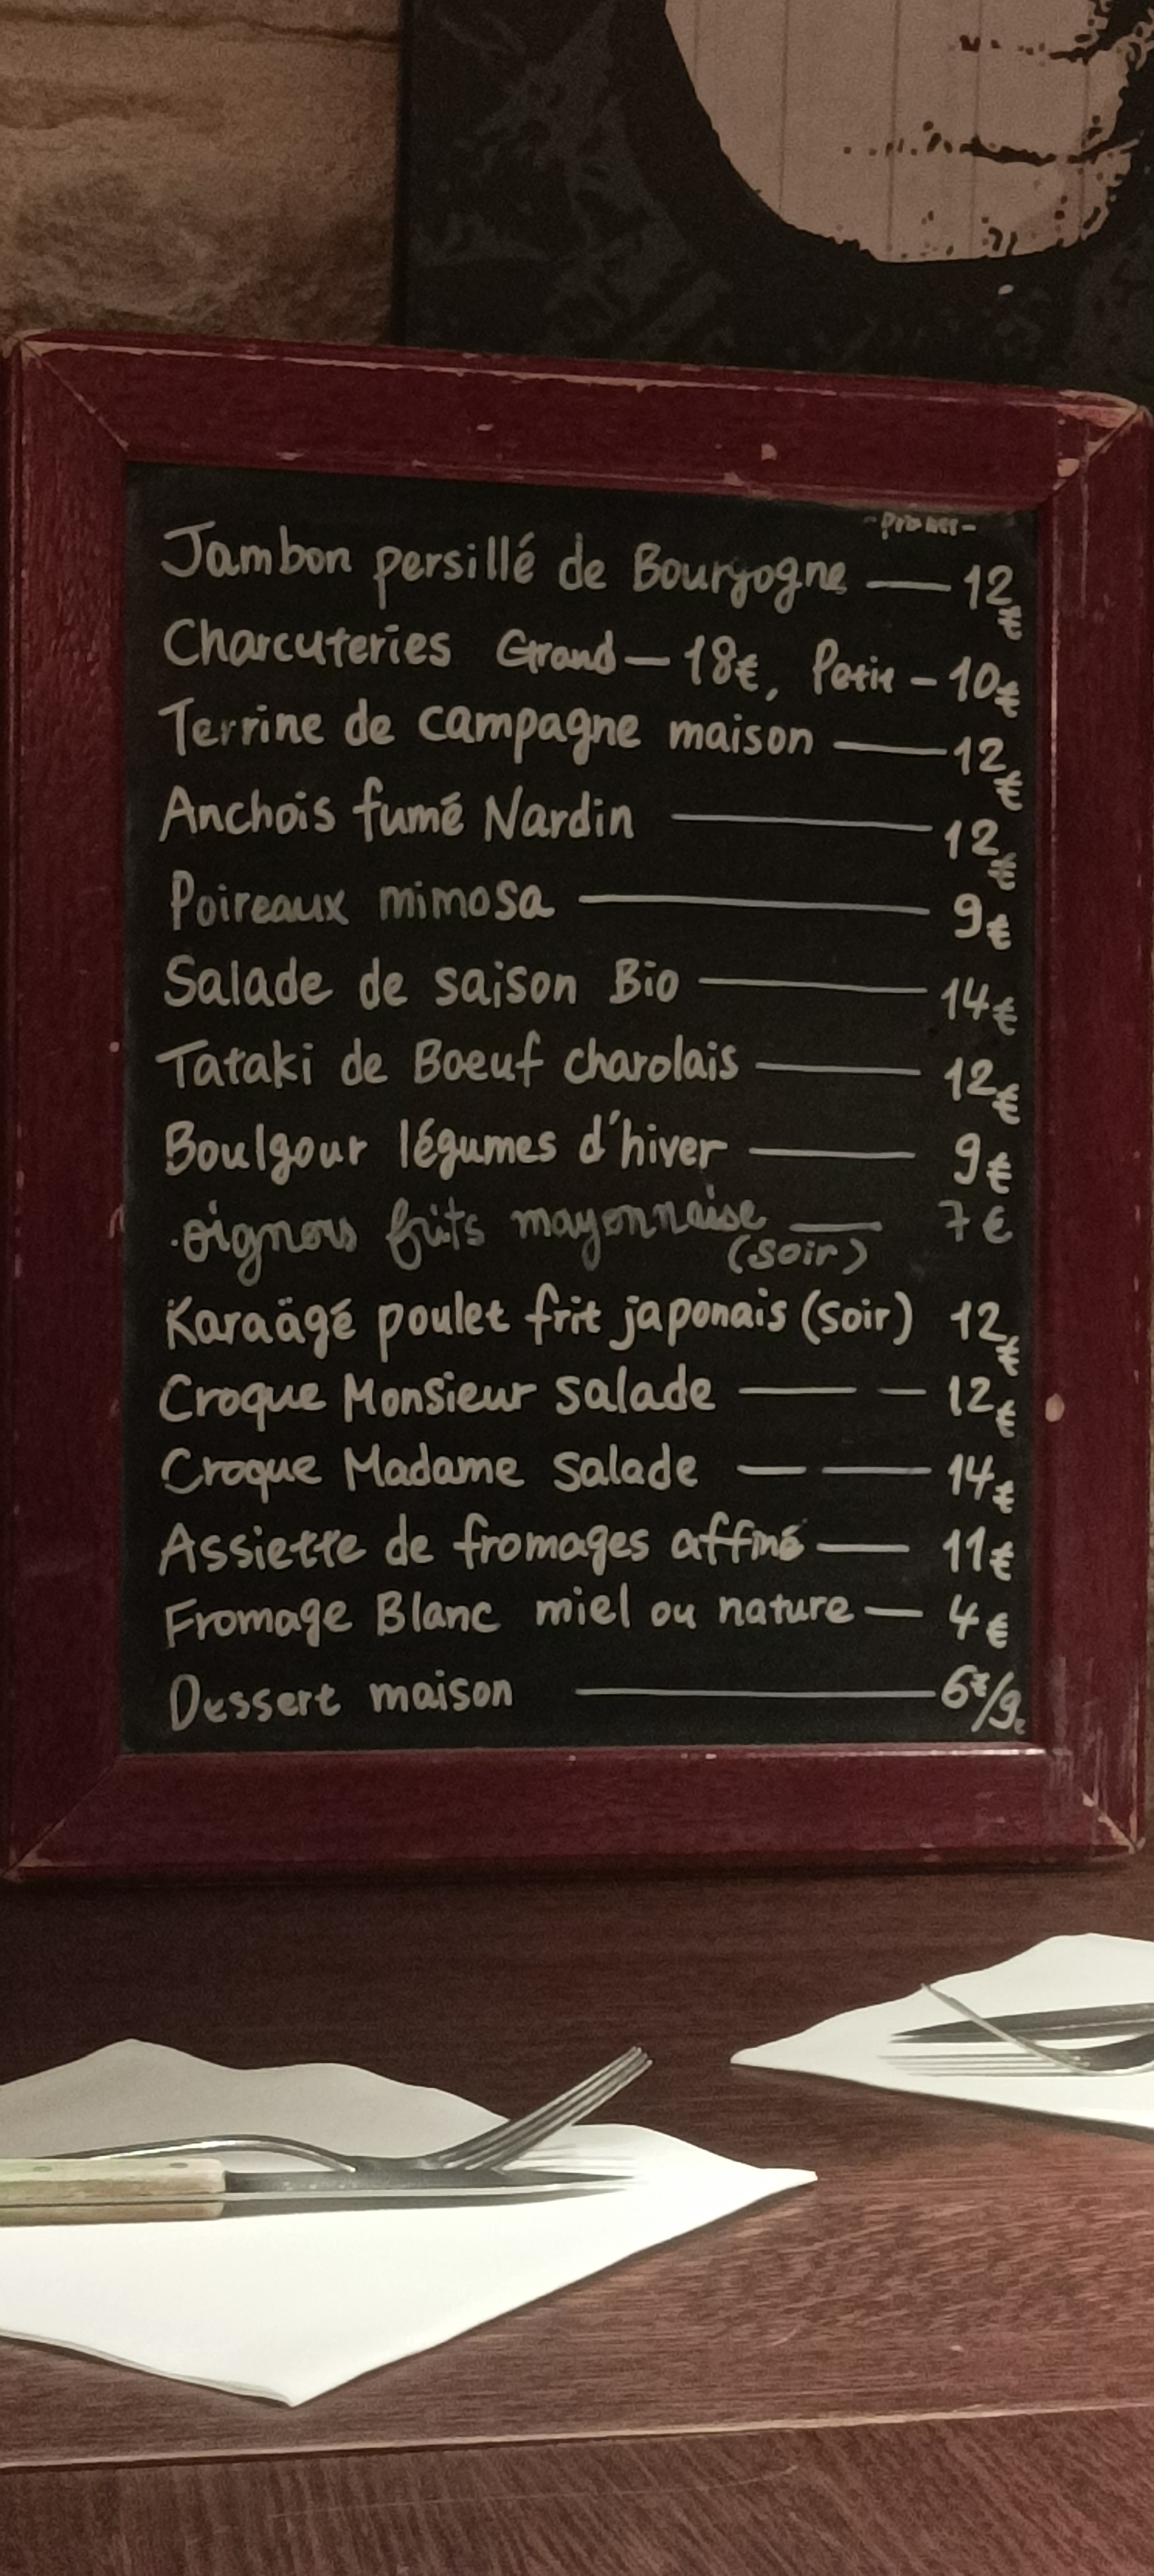 Jambon persillé de Bourgogne — 12€
Charcuteries Grand — 18€, Petit — 10€
Terrine de campagne maison — 12€
Anchois fumé Nardin — 12€
Poireaux mimosa — 9€
Salade de saison Bio — 14€
Tataki de Boeuf charolais — 12€
Boulgour légumes d'hiver — 9€
.oignons frits mayonnaise — 7€
(soir)
Karaägé poulet frit japonais (soir) 12€
Croque Monsieur salade — — 12€
Croque Madame salade — — 14€
Assiette de fromages affiné — 11€
Fromage Blanc miel ou nature — 4€
Dessert maison — 6€/9€